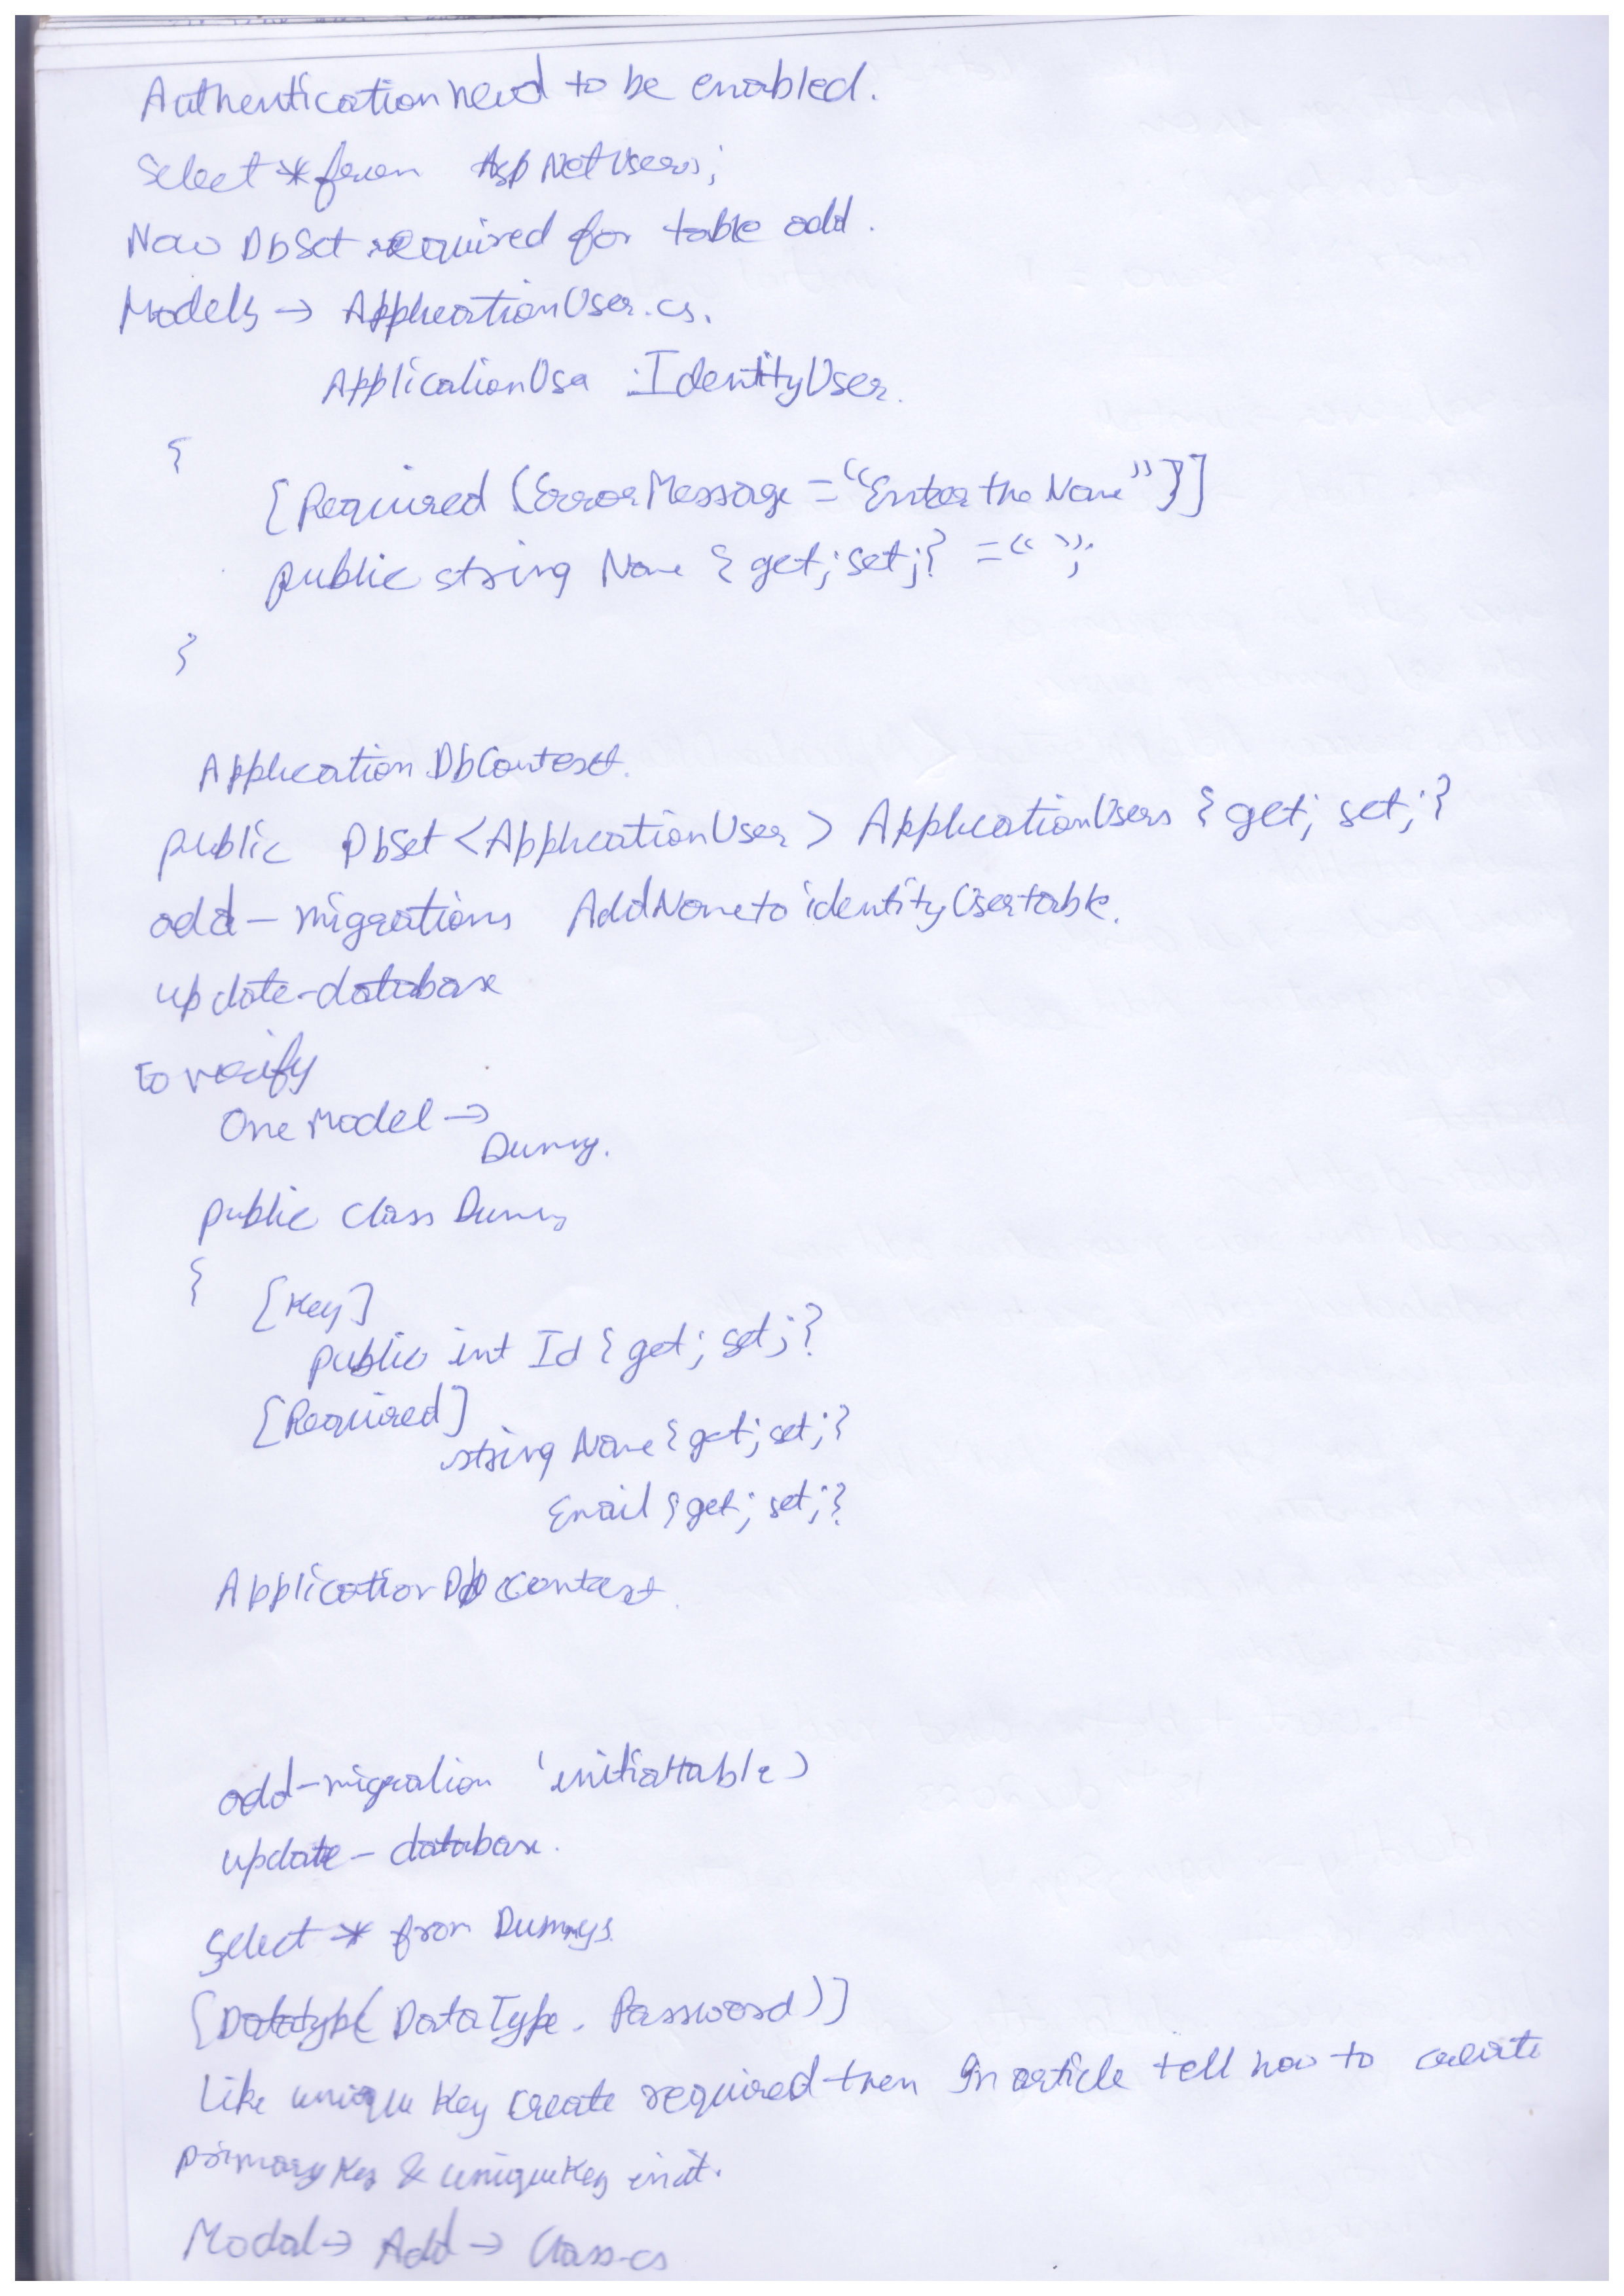 Authentication need to be enabled.
Select * from AspNetUsers;
Now DbSet required for table add.
Models → ApplicationUser.cs.
ApplicationUser : IdentityUser.
{
[Required (ErrorMessage = "Enter the Name")]
public string Name { get; set; } = " ";
}
ApplicationDbContext.
public DbSet <ApplicationUser> ApplicationUsers { get; set; }
add-migrations AddNametoidentityUsertable.
update-database
to verify
One Model →
Dummy.
public class Dummy
{ [Key]
public int Id { get; set; }
[Required]
string Name { get; set; }
Email { get; set; }
ApplicationDbContext.
add-migration 'initialtable'
update-database.
Select * from Dummys
[Datatype(DataType.Password)]
Like unique Key create required then In article tell how to create
primary Key & unique Key in it.
Modal → Add → Class.cs